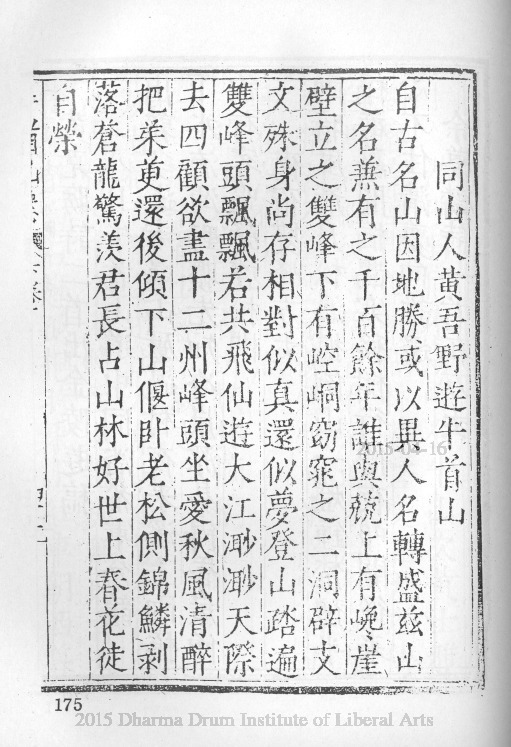 同山人黃吾野遊牛首山
自古名山因地勝或以異人名轉盛茲山
之名兼有之千百餘年誰與兢上有巉崖
壁立之雙峰下有崆峒窈窕之二洞辟支
文殊身尚存相對似真還似夢登山踏遍
雙峰頭飄飄若共飛仙遊大江渺渺天際
去四顧欲盡十二州峰頭坐愛秋風清醉
把茱萸還後傾下山偃臥老松側錦鱗剥
落蒼龍驚羨君長占山林好世上春花徒
自榮
175
2015-04-16
2015 Dharma Drum Institute of Liberal Arts